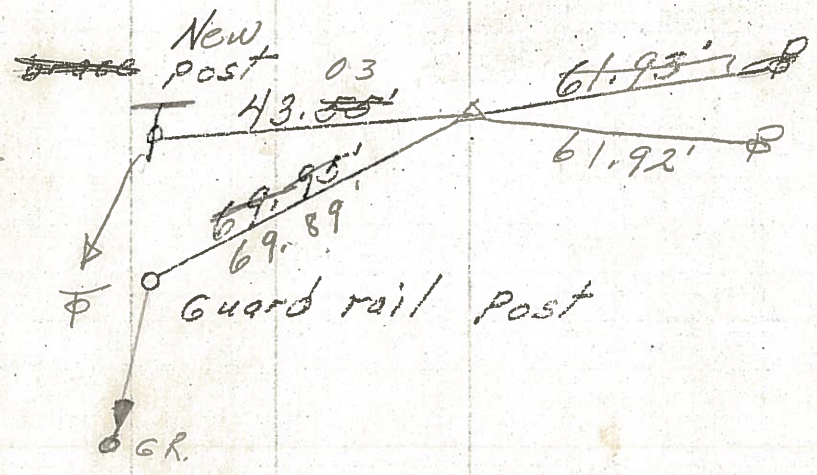 New
brace post 03
43.55' 61.95'
61.92'
69.95'
69.89'
Guard rail Post
GR.